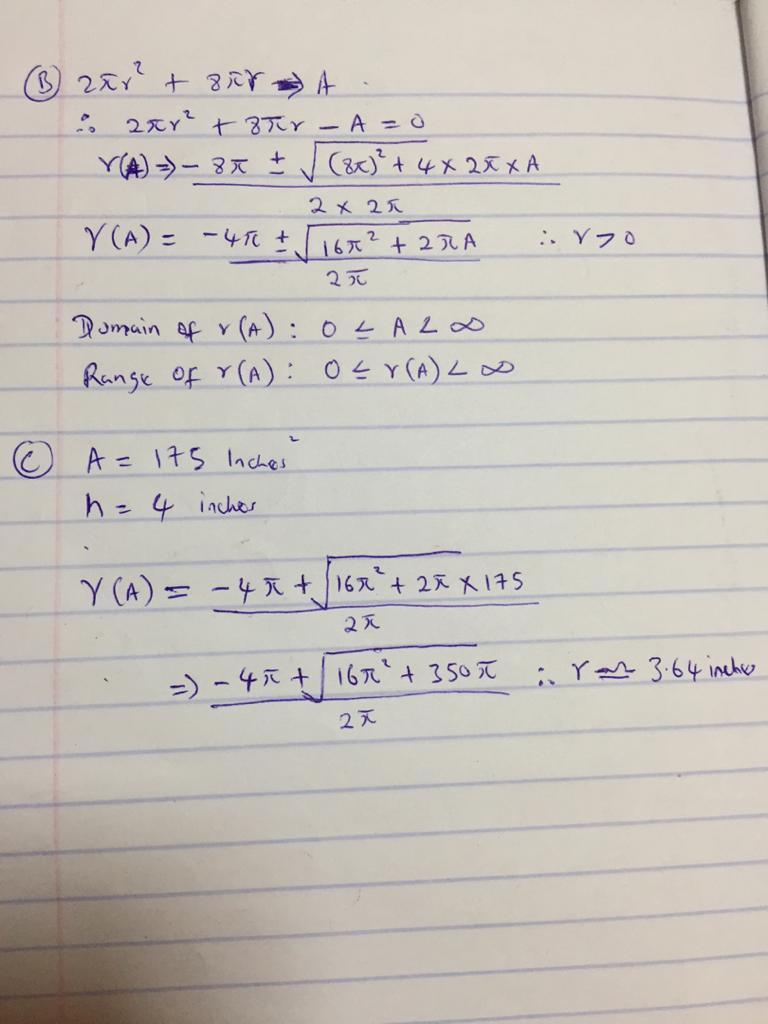 Ⓑ 2πr² + 8πr ⇒ A
∴ 2πr² + 8πr − A = 0
r(A) ⇒ − 8π ± √(8π)² + 4 × 2π × A
2 × 2π
r(A) = −4π ± √16π² + 2πA ∴ r > 0
2π
Domain of r(A) : 0 ≤ A < ∞
Range of r(A) : 0 ≤ r(A) < ∞
Ⓒ A = 175 Inches²
h = 4 inches
r(A) = −4π + √16π² + 2π × 175
2π
⇒ −4π + √16π² + 350π ∴ r ≃ 3.64 inches
2π